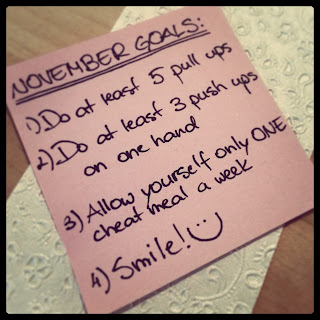 NOVEMBER GOALS:
1) Do at least 5 pull ups
2) Do at least 3 push ups
on one hand
3) Allow yourself only ONE
cheat meal a week
4) Smile!